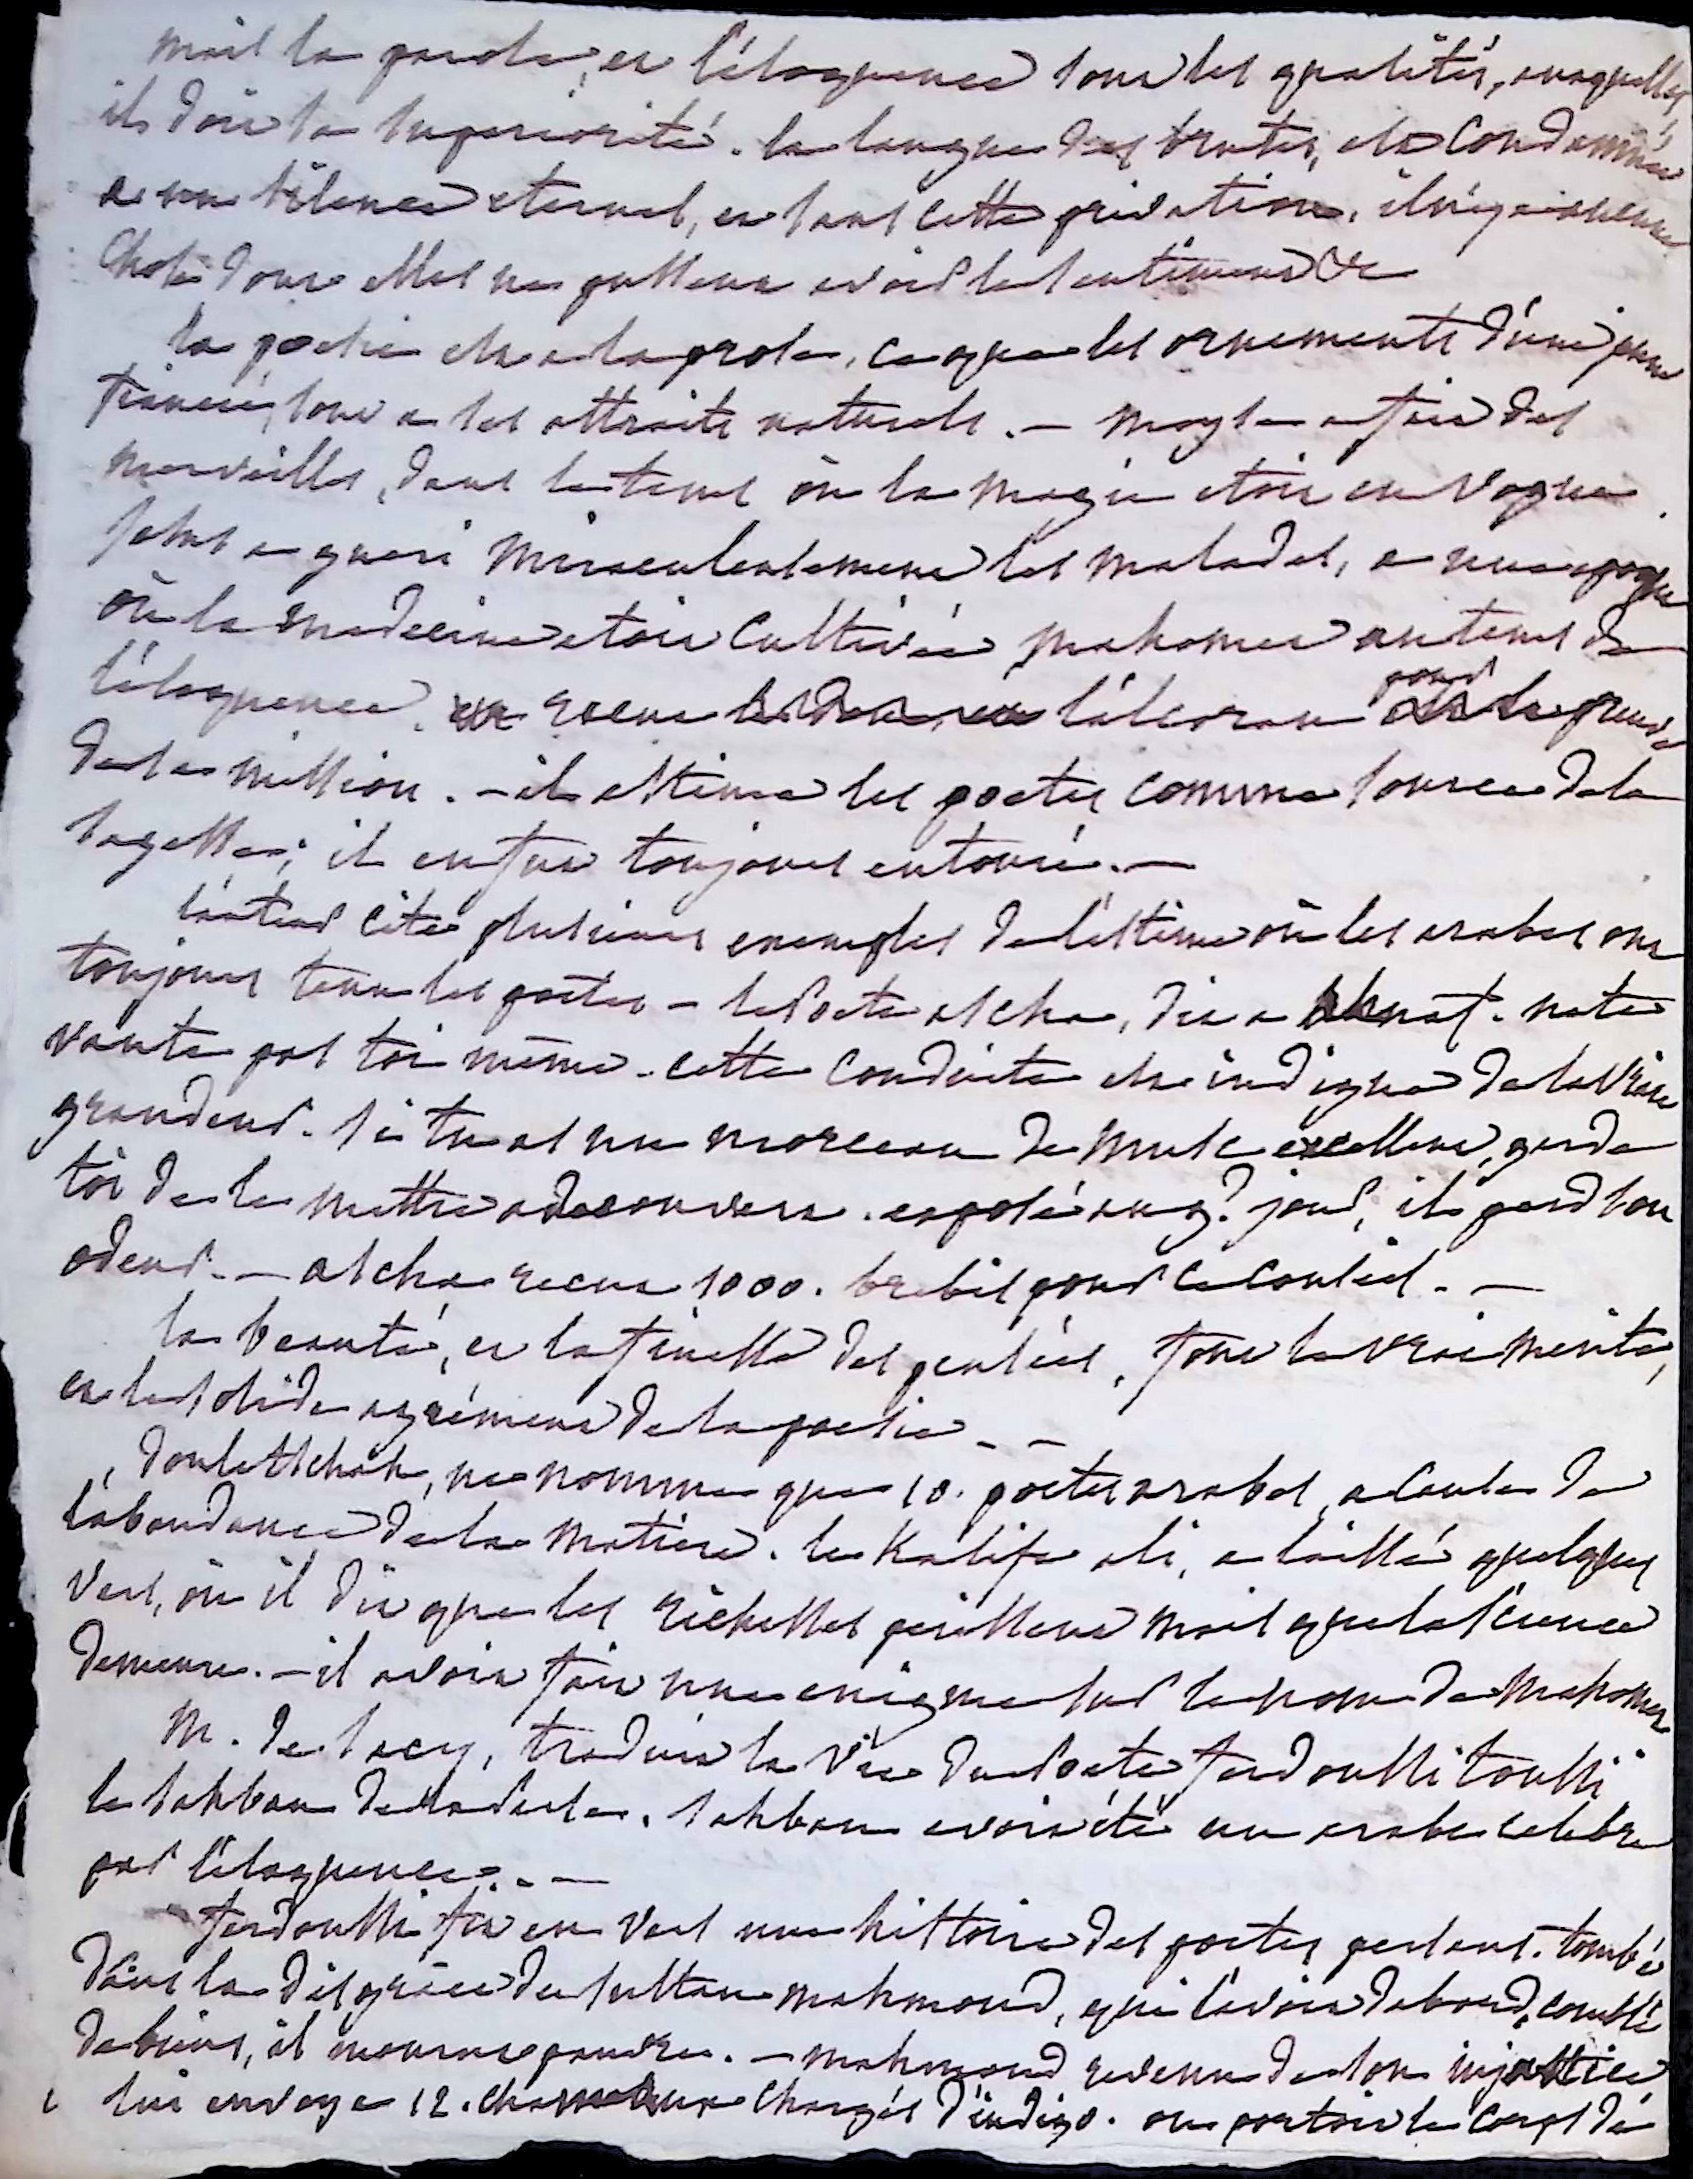 mais la parole, et l'éloquence sont les qualités, auxquelles
il doit sa superiorité. la langue des brutes, est condamnée
a un silence eternel, et sans cette privation, il n'y a aucune
chose dont elles ne pussent avoir le sentiment &c
la poesie est a la prose, ce que les ornements d'une jeune
fiancée, sont a ses attraits naturels. — moyse a fait des
merveilles, dans le tems où la magie etoit en vogue
jesus a gueri miraculeusement les malades, a une epoque
où la medecine etoit cultivée mahomet au tems de
l'éloquence, recut l'alcoran pour preuve
de sa mission. — il estima les poetes comme source de la
sagesse; il en fut toujours entouré. —
l'auteur cite plusieurs exemples de l'estime où les arabes ont
toujours tenu les poetes — le poete ascha, dit a ahnaf. ne te
vante pas toi même. cette conduite est indigne de la vraie
grandeur. si tu as un morceau de musc excellent, garde
toi de le mettre a decouvert. exposé au gd jour, il perd son
odeur. — ascha recut 1000. brebis pour ce conseil. —
la beauté, et la finesse des pensées, font le vrai merite,
et le solide agrément de la poesie — —
douletschah, ne nomme que 10. poetes arabes, a cause de
l'abondance de la matiere. le Kalife ali, a laissé quelques
vers, où il dit que les richesses perissent mais que la science
demeure. — il avoit fait une enigme sur le nom de mahomet
M. de sacy, traduit la vie du poete ferdoussi toussi
le sahban de son siecle. sahban avoit été un arabe celebre
par l'éloquence. —
ferdoussi fit en vers une histoire des poetes persans. tombé
dans la disgrace du sultan mahmoud, qui l'avoit d'abord, comblé
de biens, il mourut pauvre. — mahmoud revenu de son injustice
lui envoya 12. chameaux chargés d'indigo. on portoit le corps de